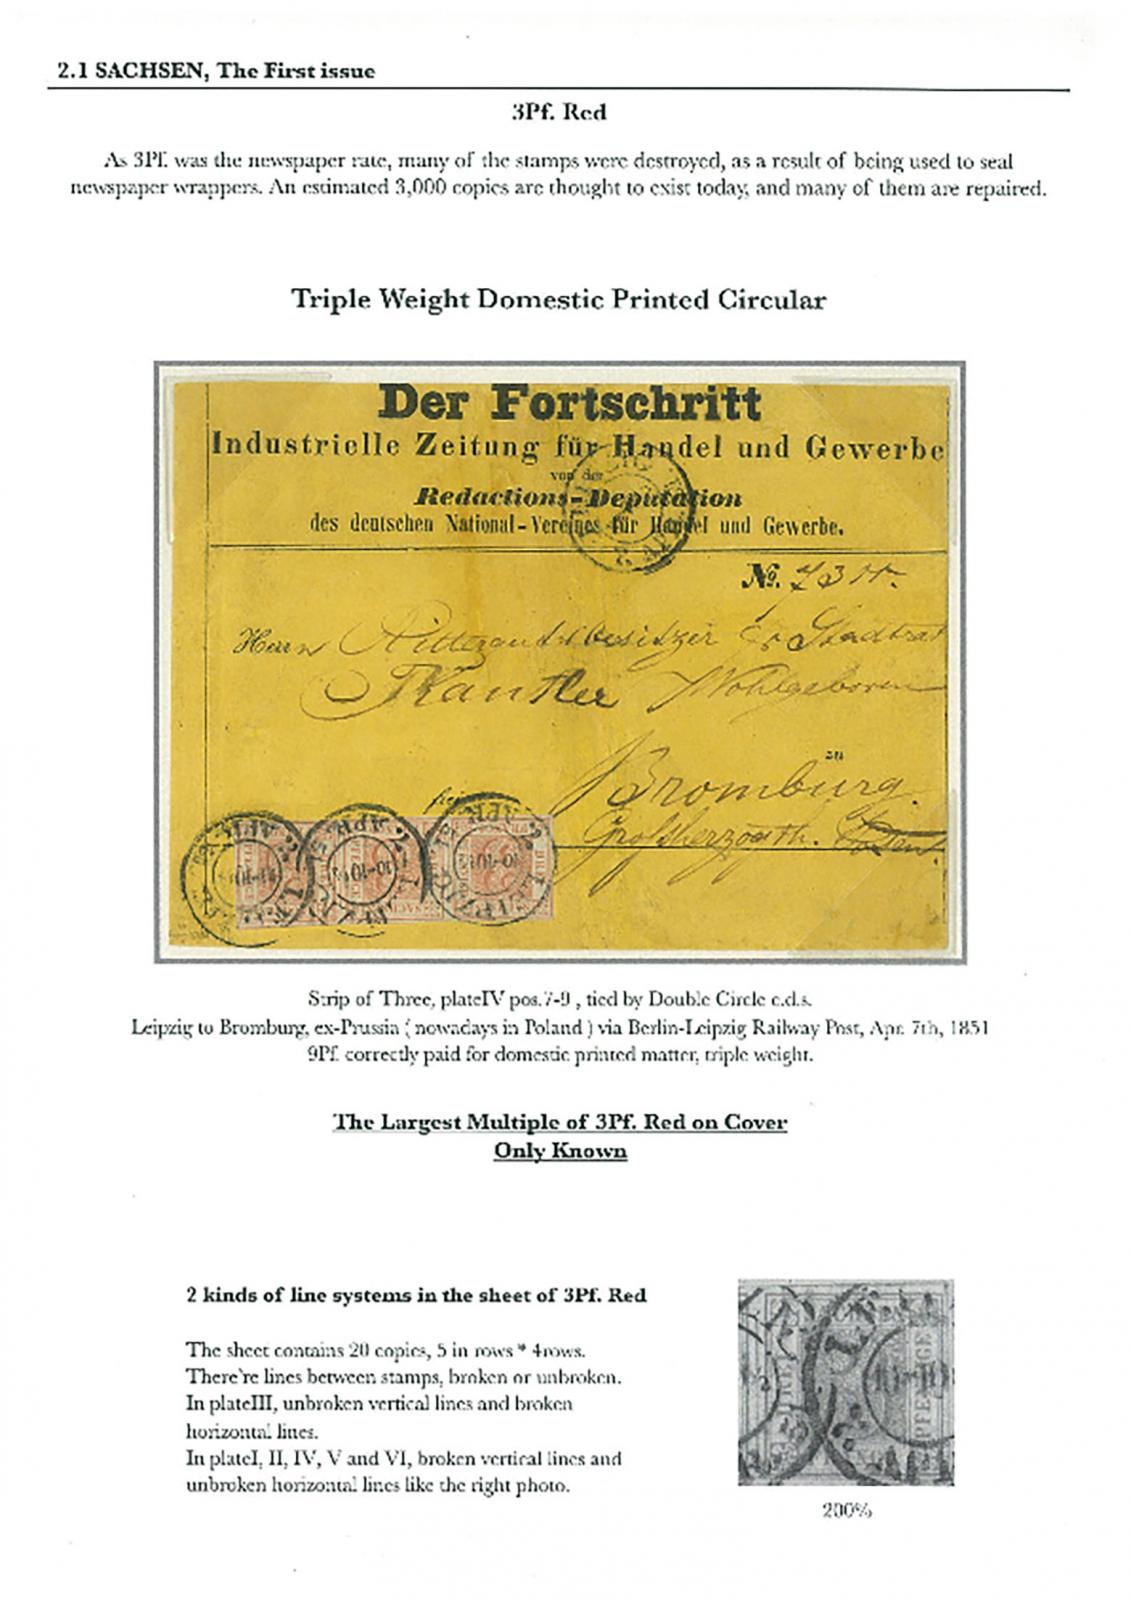 2.1 SACHSEN, The First issue
3Pf. Red
As 3Pf. was the newspaper rate, many of the stamps were destroyed, as a result of being used to seal
newspaper wrappers. An estimated 3,000 copies are thought to exist today, and many of them are repaired.
Triple Weight Domestic Printed Circular
Der Fortschritt
Industrielle Zeitung für Handel und Gewerbe
von der
Redactions-Deputation
des deutschen National-Vereines für Handel und Gewerbe.
No.
Herrn Rittergutsbesitzer & Stadtrat
Wohlgeboren
zu
Bromburg.
Grossherzogth.
Strip of Three, plateIV pos.7-9 , tied by Double Circle c.d.s.
Leipzig to Bromburg, ex-Prussia ( nowadays in Poland ) via Berlin-Leipzig Railway Post, Apr. 7th, 1851
9Pf. correctly paid for domestic printed matter, triple weight.
The Largest Multiple of 3Pf. Red on Cover
Only Known
2 kinds of line systems in the sheet of 3Pf. Red
The sheet contains 20 copies, 5 in rows * 4rows.
There're lines between stamps, broken or unbroken.
In plateIII, unbroken vertical lines and broken
horizontal lines.
In plateI, II, IV, V and VI, broken vertical lines and
unbroken horizontal lines like the right photo.
PFENNIGE
200%